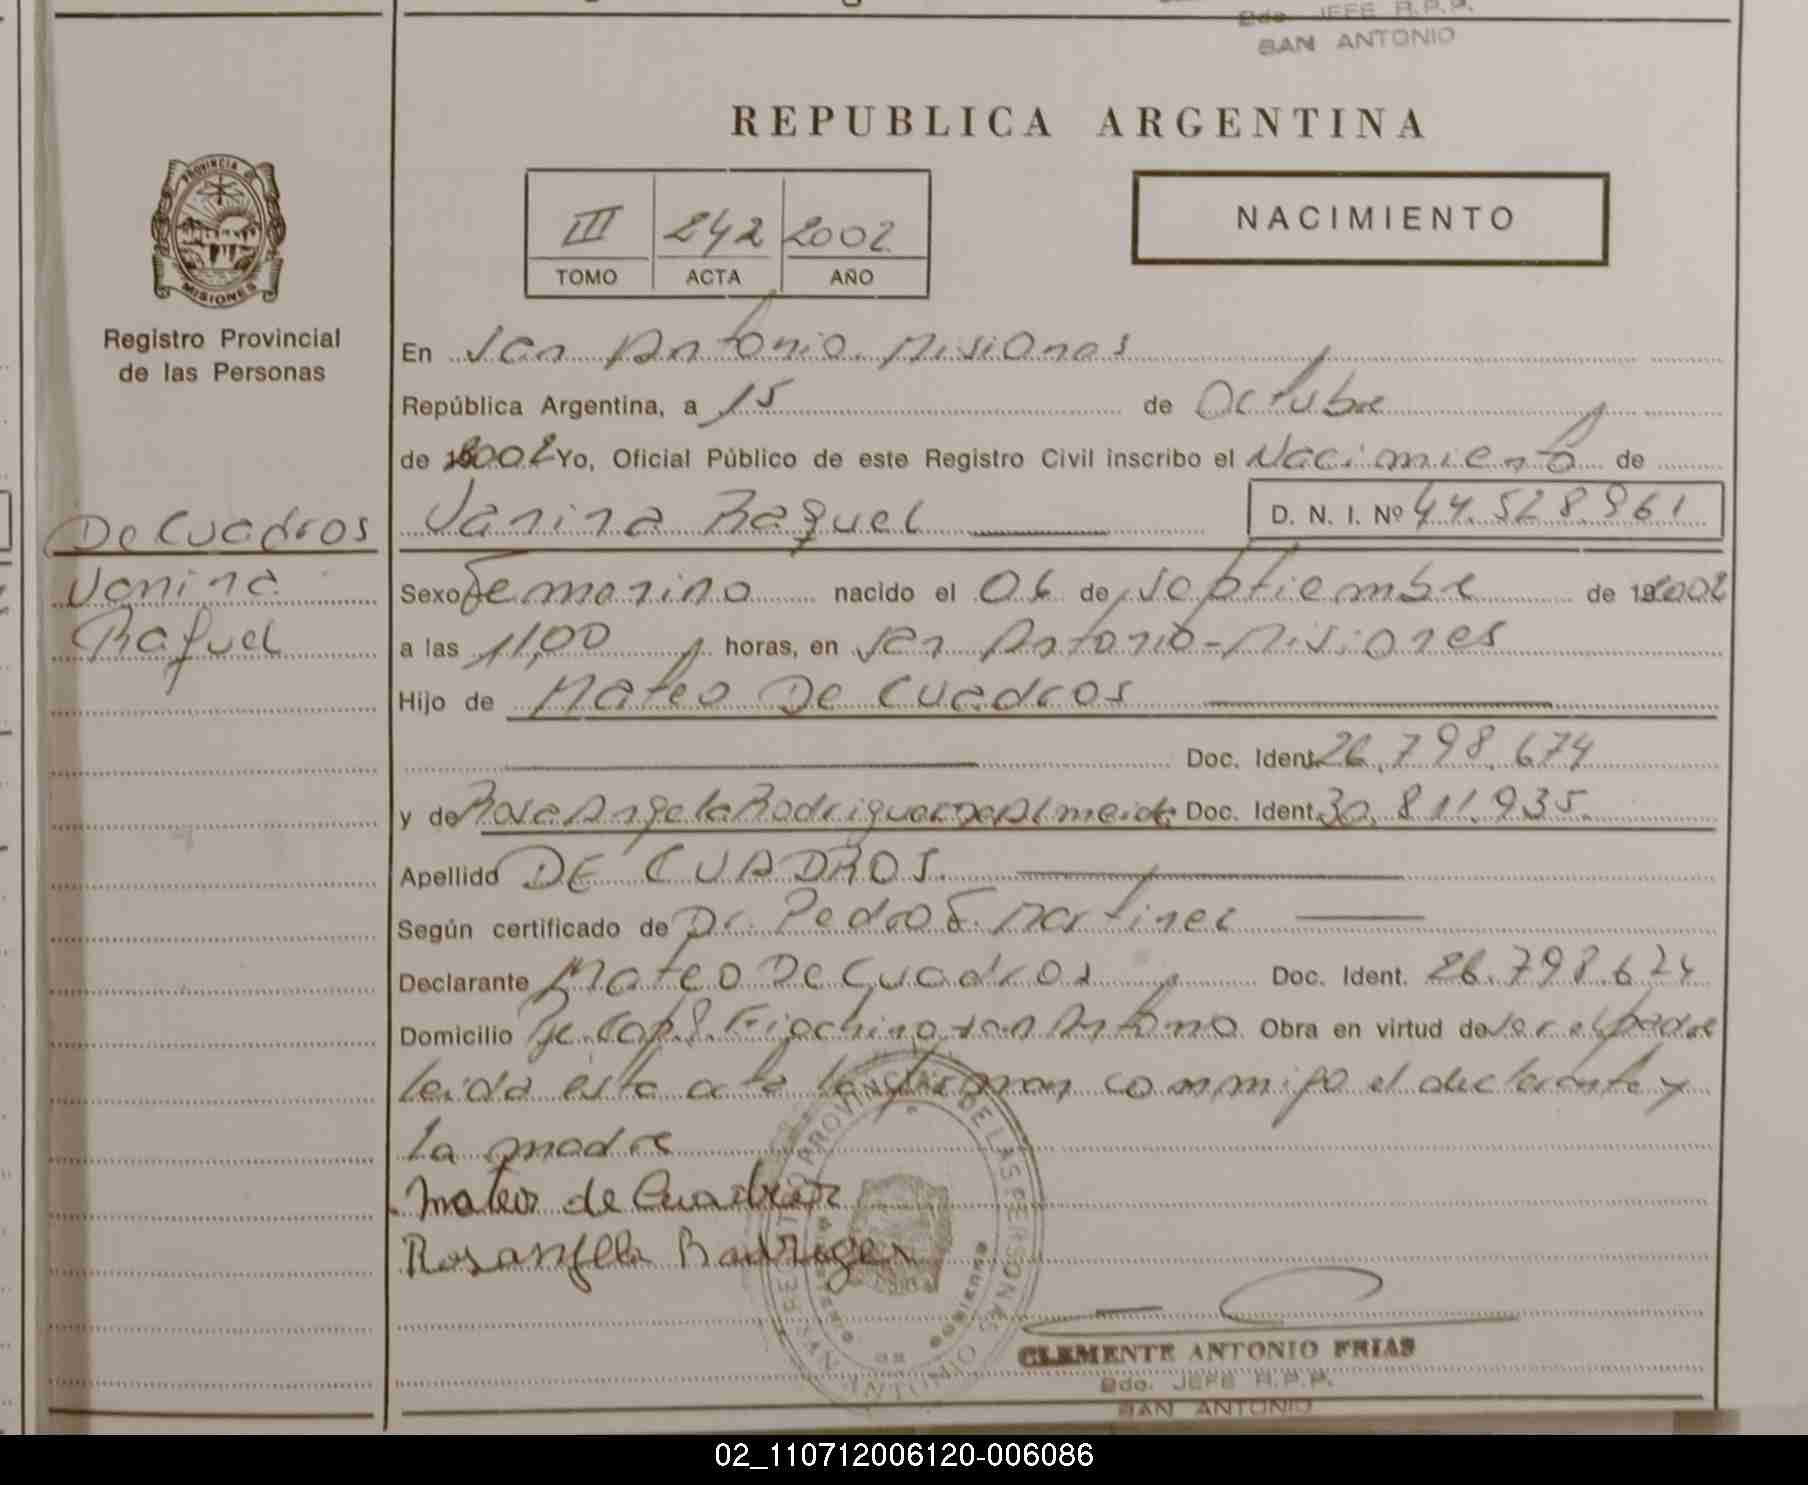 Bdo. JEFE R.P.P.
SAN ANTONIO
REPUBLICA ARGENTINA
PROVINCIA D
MISIONES
Registro Provincial
de las Personas
III 242 2002
TOMO ACTA AÑO
NACIMIENTO
En San Antonio. Misiones
República Argentina, a 15 de Octubre
de 2002 Yo, Oficial Público de este Registro Civil inscribo el Nacimiento de
De Cuadros
Janina
Raquel
Janina Raquel D. N. I. Nº 44.528.961
Sexo Femenino nacido el 06 de Septiembre de 2002
a las 11,00 horas, en San Antonio - Misiones
Hijo de Mateo De Cuadros
Doc. Ident. 26.798.674
y de Rosa Angela Rodriguez De Almeida Doc. Ident. 30.811.935.
Apellido DE CUADROS.
Según certificado de Dr. Pedro E. Martinez
Declarante Mateo De Cuadros Doc. Ident. 26.798.674
Domicilio Pje. Cap. Giachino San Antonio Obra en virtud de ser el padre
leida esta acta la firman conmigo el declarante y
la madre
Mateus de Cuadros
Rosangela Rodriguez
REGISTRO PROVINCIAL DE LAS PERSONAS
SAN ANTONIO
CLEMENTE ANTONIO FRIAS
Bdo. JEFE R.P.P.
SAN ANTONIO
02_110712006120-006086